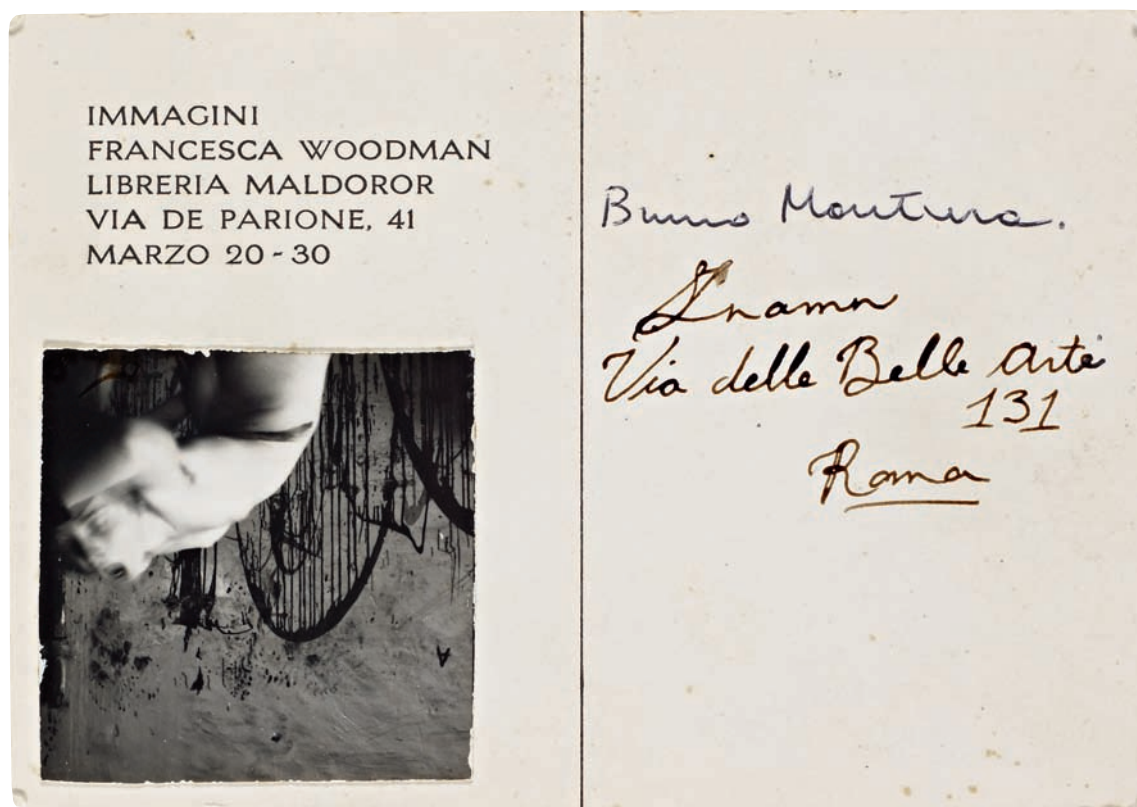 IMMAGINI
FRANCESCA WOODMAN
LIBRERIA MALDOROR
VIA DE PARIONE, 41
MARZO 20-30
Bruno Mantura.
Via delle Belle Arti
131
Roma